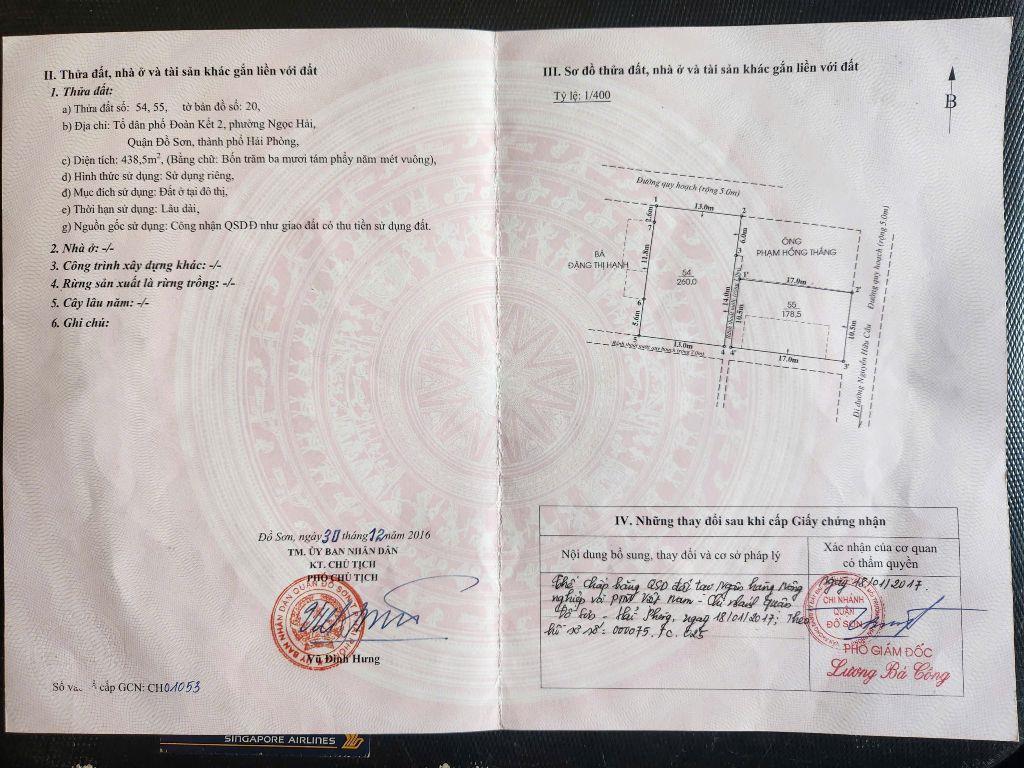 II. Thửa đất, nhà ở và tài sản khác gắn liền với đất
1. Thửa đất:
a) Thửa đất số: 54, 55, tờ bản đồ số: 20,
b) Địa chỉ: Tổ dân phố Đoàn Kết 2, phường Ngọc Hải,
Quận Đồ Sơn, thành phố Hải Phòng,
c) Diện tích: 438,5m², (Bằng chữ: Bốn trăm ba mươi tám phẩy năm mét vuông),
d) Hình thức sử dụng: Sử dụng riêng,
đ) Mục đích sử dụng: Đất ở tại đô thị,
e) Thời hạn sử dụng: Lâu dài,
g) Nguồn gốc sử dụng: Công nhận QSDĐ như giao đất có thu tiền sử dụng đất.
2. Nhà ở: -/-
3. Công trình xây dựng khác: -/-
4. Rừng sản xuất là rừng trồng: -/-
5. Cây lâu năm: -/-
6. Ghi chú:
Đồ Sơn, ngày 30 tháng 12 năm 2016
TM. ỦY BAN NHÂN DÂN
KT. CHỦ TỊCH
PHÓ CHỦ TỊCH
Vũ Đình Hưng
Số và cấp GCN: CH01053
III. Sơ đồ thửa đất, nhà ở và tài sản khác gắn liền với đất
Tỷ lệ: 1/400
B
Đường quy hoạch (rộng 5.0m)
1
13.0m
2
2.6m
7
6.0m
ÔNG
PHẠM HỒNG THẮNG
BÀ
ĐẶNG THỊ HẠNH
11.8m
3
54
260,0
1'
17.0m
2'
14.0m
10.5m
55
178,5
6
5.6m
5
13.0m
4
4'
17.0m
3'
10.5m
Rãnh thoát nước quy hoạch (rộng 2.0m)
Đường quy hoạch (rộng 5.0m)
Đi đường Nguyễn Hữu Cầu
IV. Những thay đổi sau khi cấp Giấy chứng nhận
Nội dung bổ sung, thay đổi và cơ sở pháp lý
Xác nhận của cơ quan
có thẩm quyền
Thế chấp bằng QSD đất tại Ngân hàng Nông
nghiệp và PTNT Việt Nam - Chi nhánh Quận
Đồ Sơn - Hải Phòng, ngày 18/01/2017; Theo
hồ sơ số: 000075.TC.
ngày 18/01/2017
CHI NHÁNH
QUẬN
ĐỒ SƠN
PHÓ GIÁM ĐỐC
Lương Bá Công
SINGAPORE AIRLINES